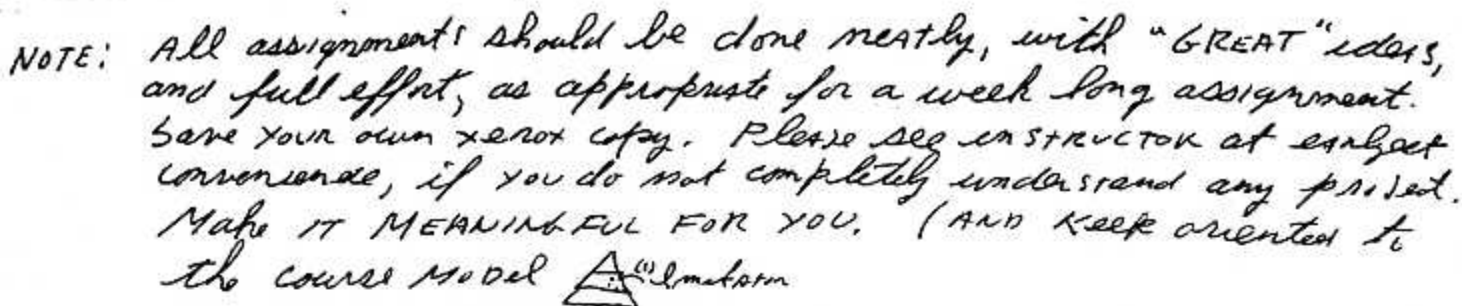 NOTE: All assignments should be done neatly, with "GREAT" ideas,
and full effort, as appropriate for a week long assignment.
Save your own xerox copy. Please see instructor at earliest
convenience, if you do not completely understand any project.
Make IT MEANINGFUL FOR YOU. (AND Keep oriented to
the course MODEL